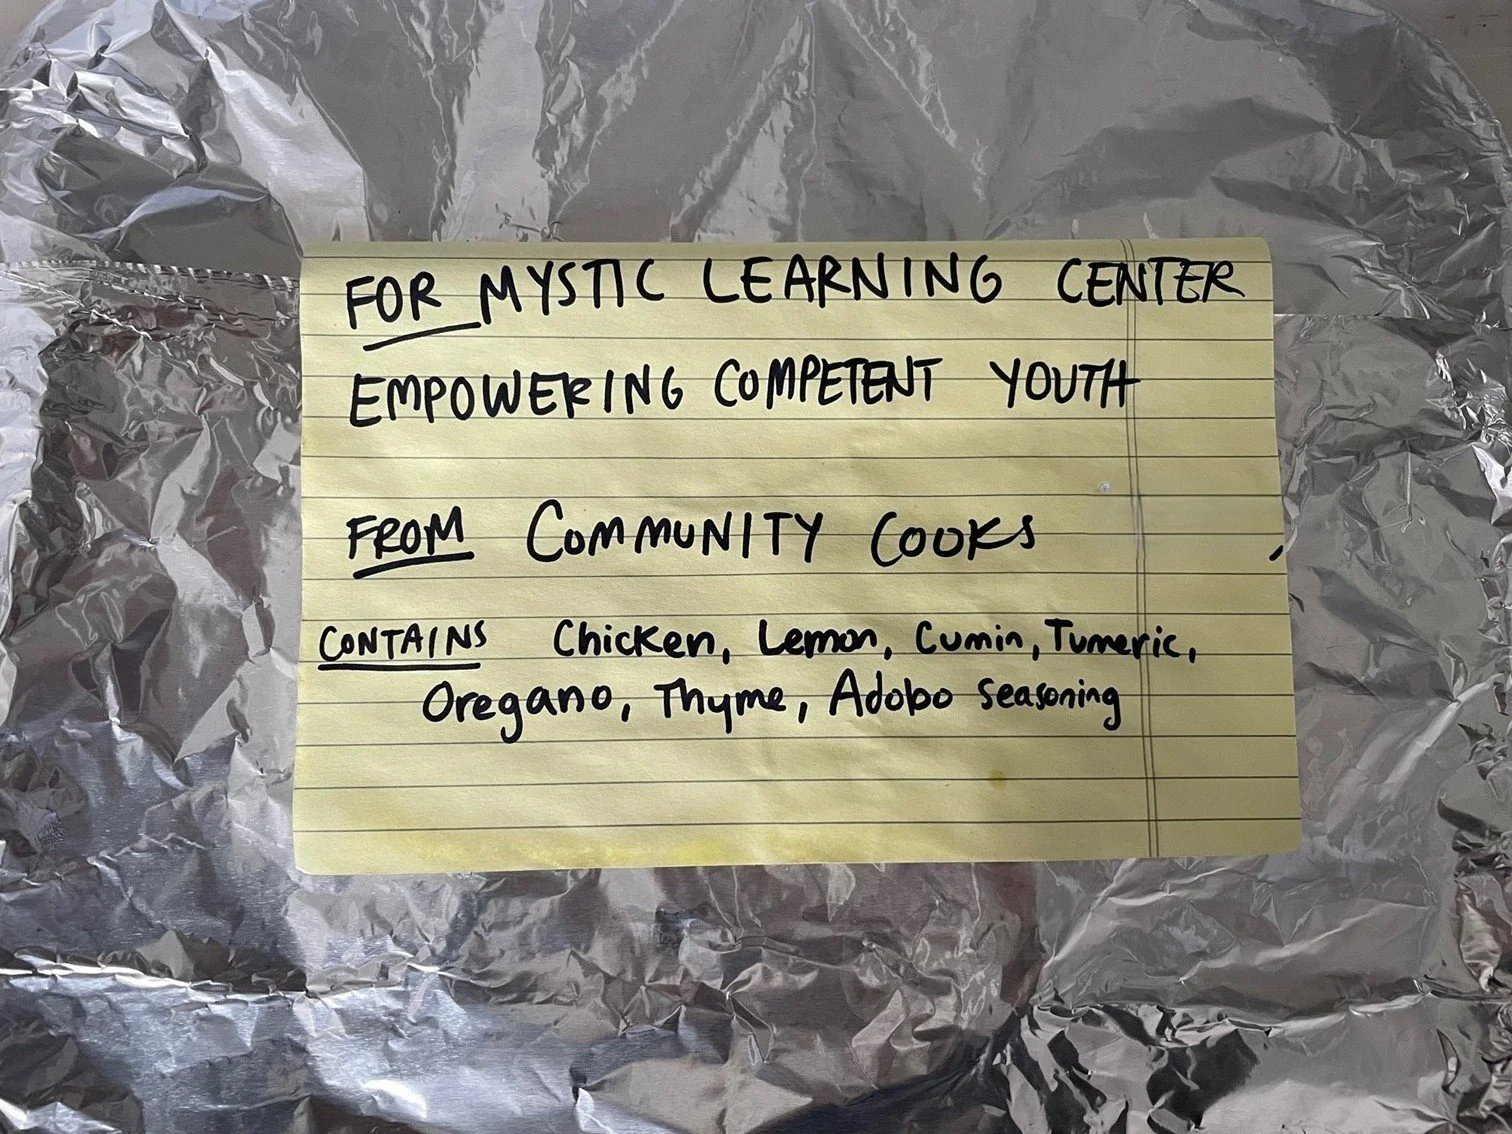 FOR MYSTIC LEARNING CENTER
EMPOWERING COMPETENT YOUTH
FROM COMMUNITY COOKS
CONTAINS Chicken, Lemon, Cumin, Tumeric,
Oregano, Thyme, Adobo seasoning